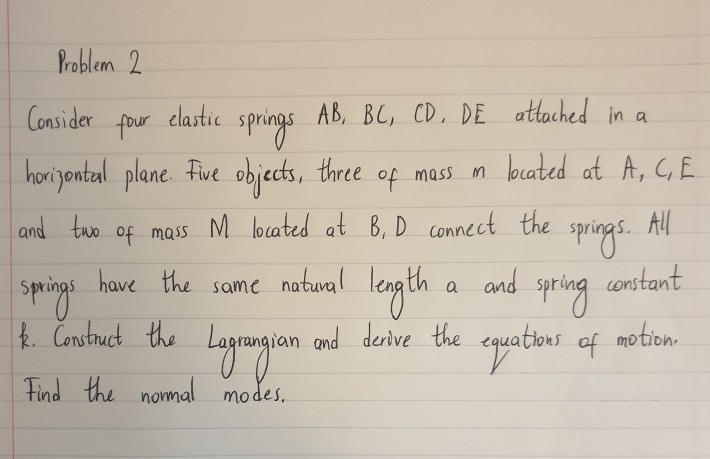 Problem 2
Consider four elastic springs AB, BC, CD, DE attached in a
horizontal plane. Five objects, three of mass m located at A, C, E
and two of mass M located at B, D connect the springs. All
springs have the same natural length a and spring constant
k. Construct the Lagrangian and derive the equations of motion.
Find the normal modes.